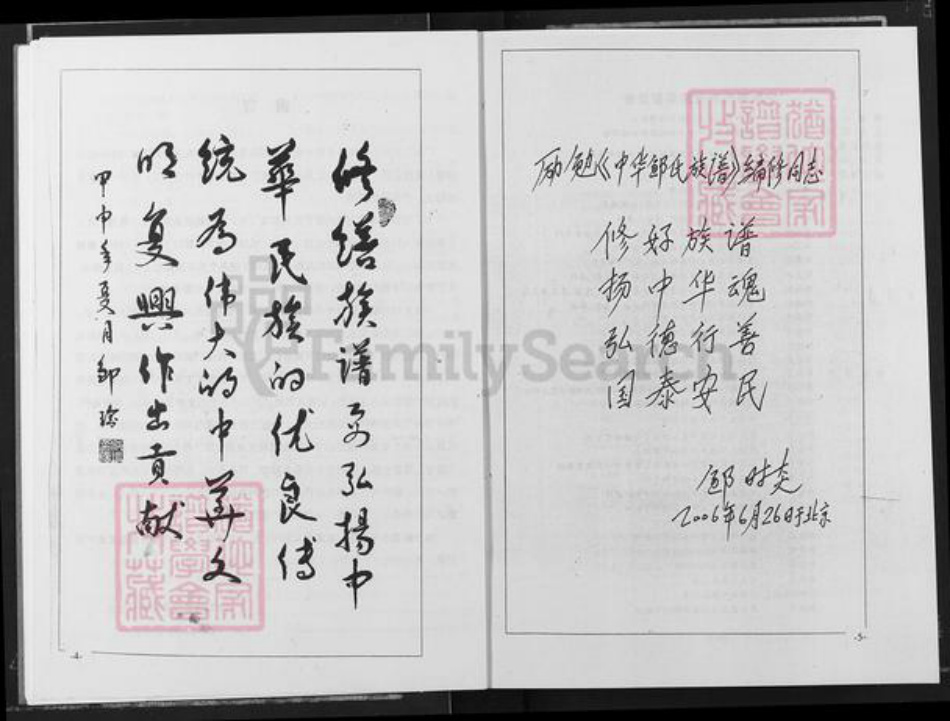 修缮族谱为弘揚中
華民族的优良传
统为伟大的中華文
明复興作出贡献
甲申年夏月邹
-4-
励勉《中华邹氏族谱》编修同志
修好族谱
扬中华魂
弘德行善
国泰安民
邹时炎
2006年6月26日于北京
-5-
FamilySearch